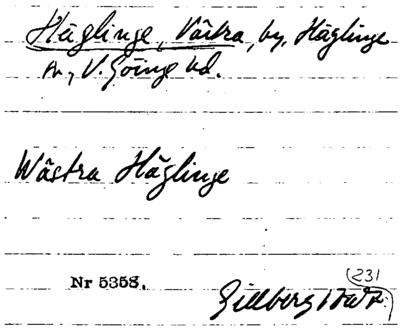 Häglinge, Västra, by, Häglinge
sn, V. Göinge hd.
Wästra Häglinge
Nr 5358.
(231
Gillberg